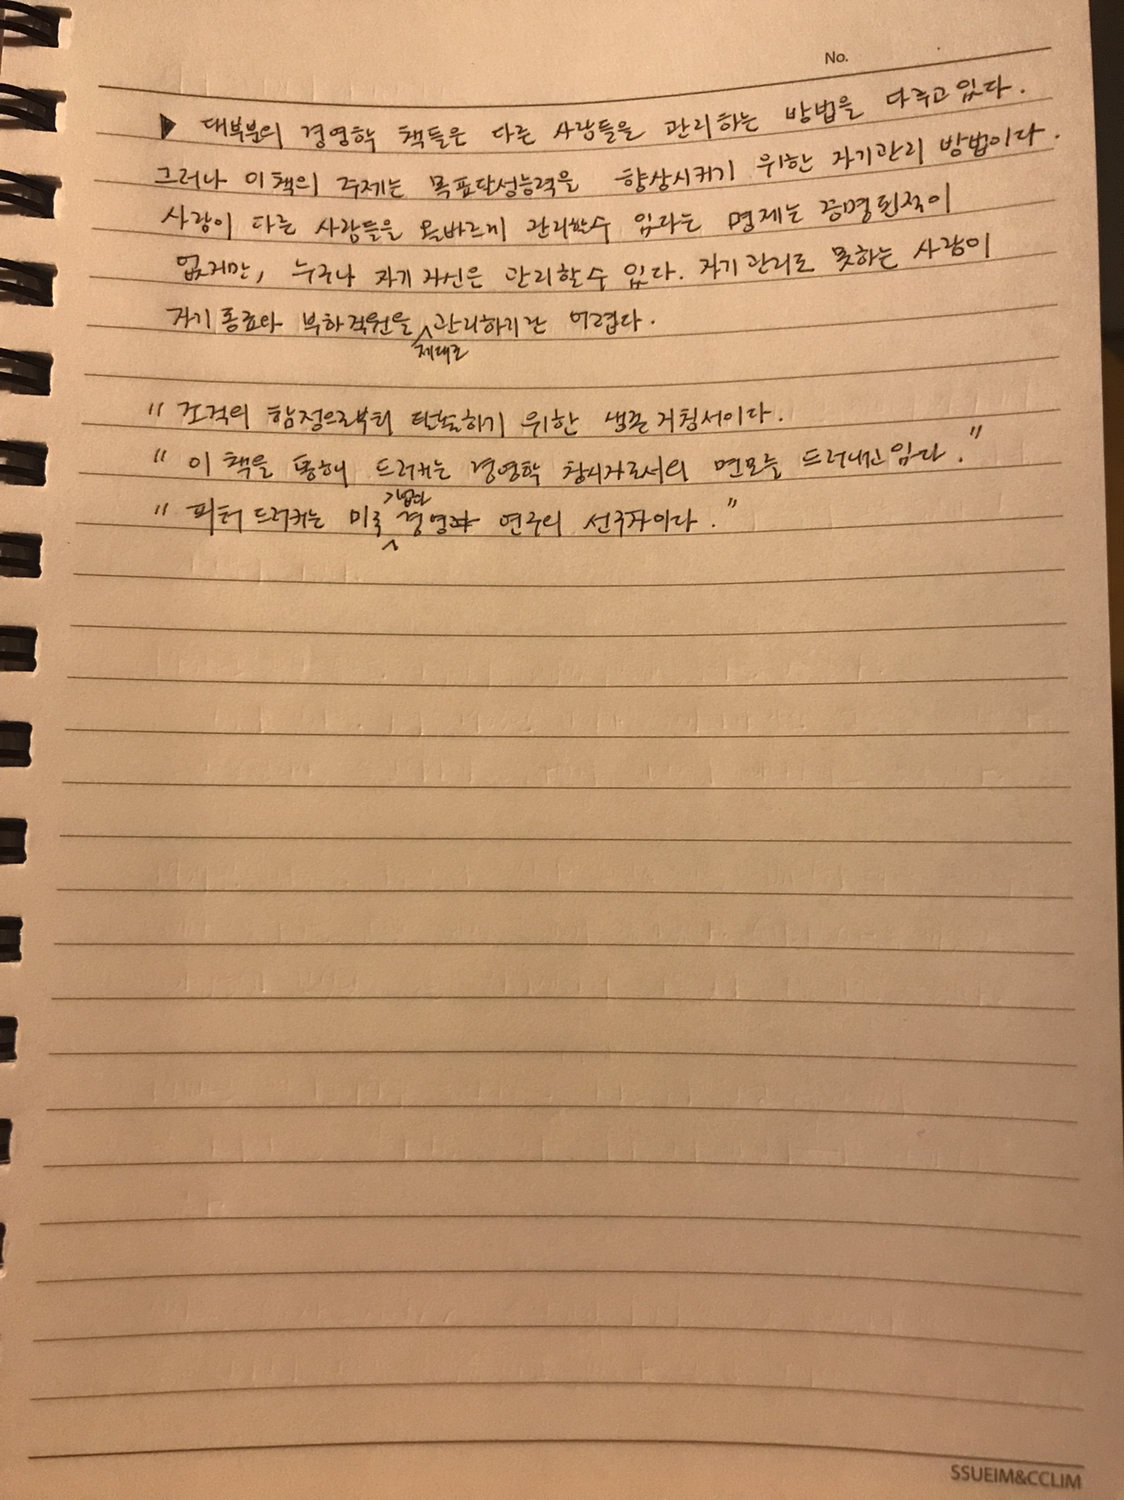 No.
▶ 대부분의 경영학 책들은 다른 사람들을 관리하는 방법을 다루고 있다.
그러나 이 책의 주제는 목표달성능력을 향상시키기 위한 자기관리 방법이다.
사람이 다른 사람들을 올바르게 관리할수 있다는 명제는 증명된적이
없지만, 누구나 자기 자신은 관리할 수 있다. 자기 관리도 못하는 사람이
자기 동료와 부하직원을 제대로 관리하기란 어렵다.
" 조직의 함정으로부터 탈출하기 위한 생존 지침서이다.
" 이 책을 통해 드러커는 경영학 창시자로서의 면모를 드러내고 있다. "
" 피터 드러커는 미국 기업과 경영 연구의 선구자이다. "
SSUEIM&CCLIM